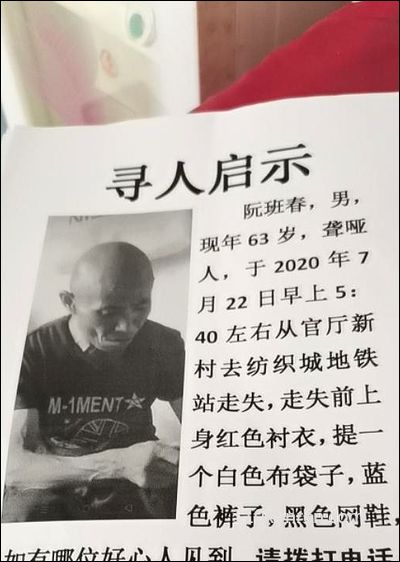 寻人启示
阮班春，男，
现年 63 岁，聋哑
人，于 2020 年 7
月 22 日早上 5：
40 左右从官厅新
村去纺织城地铁
站走失，走失前上
身红色衬衣，提一
个白色布袋子，蓝
色裤子，黑色网鞋，
如有哪位好心人见到，请拨打电话
M-1MENT